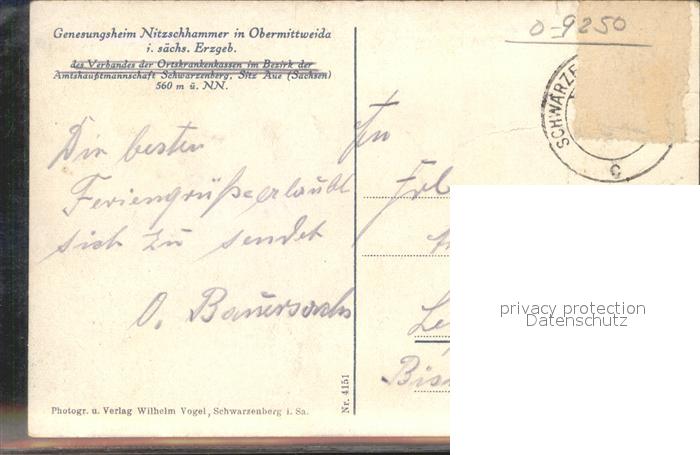 Genesungsheim Nitzschhammer in Obermittweida
i. sächs. Erzgeb.
des Verbandes der Ortskrankenkassen im Bezirk der
Amtshauptmannschaft Schwarzenberg, Sitz Aue (Sachsen)
560 m ü. NN.
0-9250
SCHWARZE
C
Die besten
Feriengrüße erlaubt
sich zu sendet
O. Bauersachs
Frl
Le
Bis
privacy protection
Datenschutz
Nr. 4151
Photogr. u. Verlag Wilhelm Vogel, Schwarzenberg i. Sa.